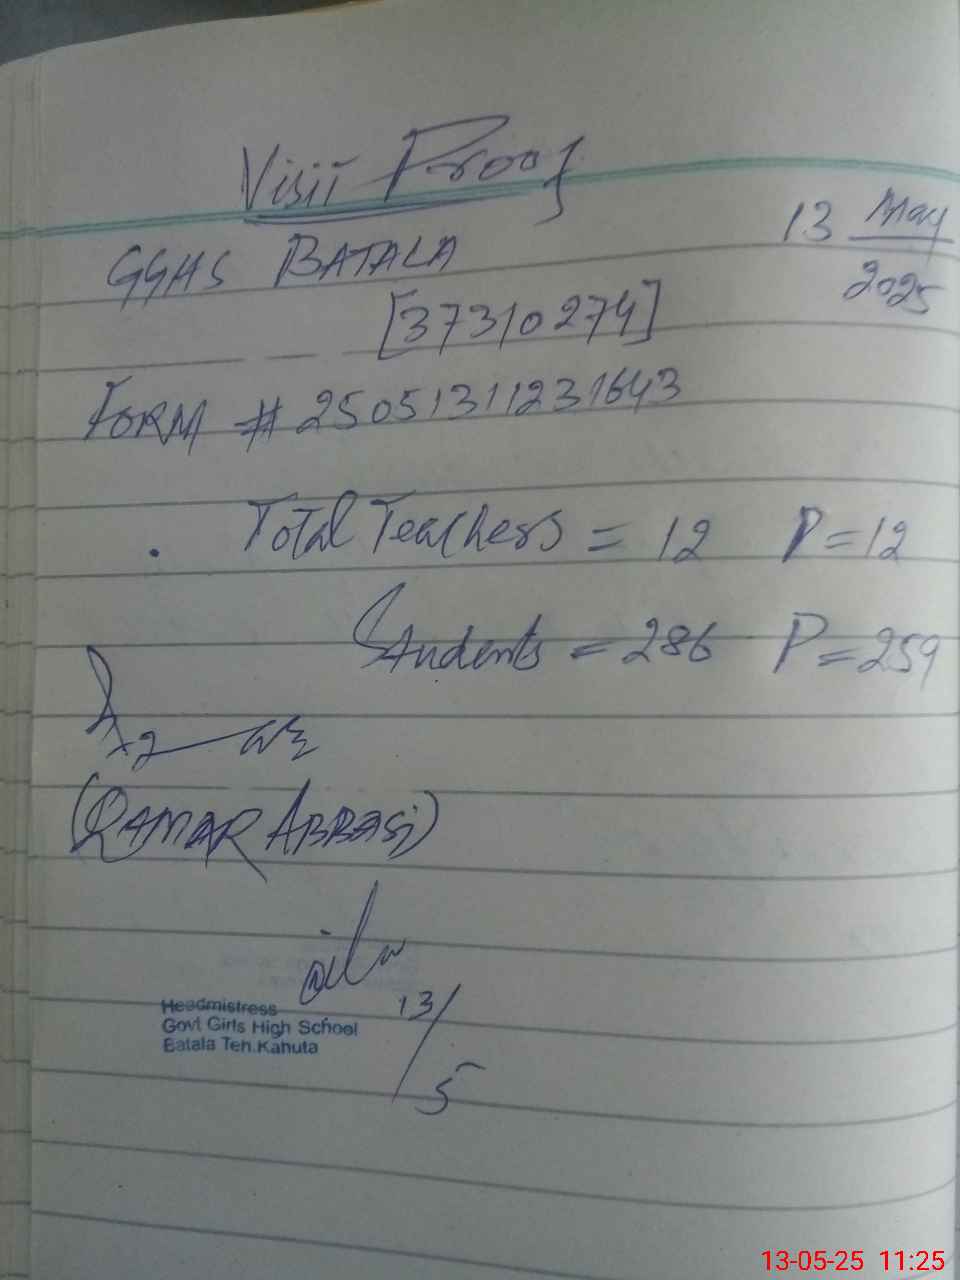 Visit Proof
13 May
2025
GGHS BATALA
[37310274]
FORM # 25051311231643
Total Teachers = 12 P = 12
Students = 286 P = 259
(QAMAR ABBASi)
13/5
Headmistress
Govt Girls High School
Batala Teh.Kahuta
13-05-25 11:25